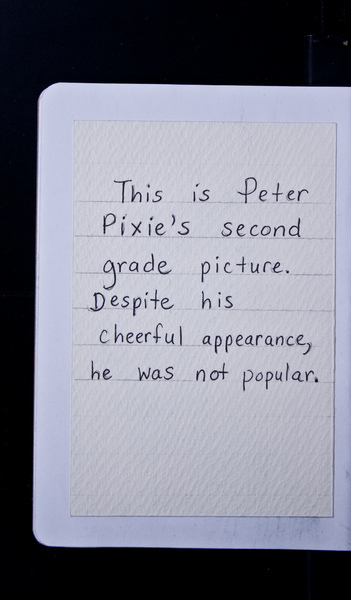 This is Peter
Pixie's second
grade picture.
Despite his
cheerful appearance,
he was not popular.